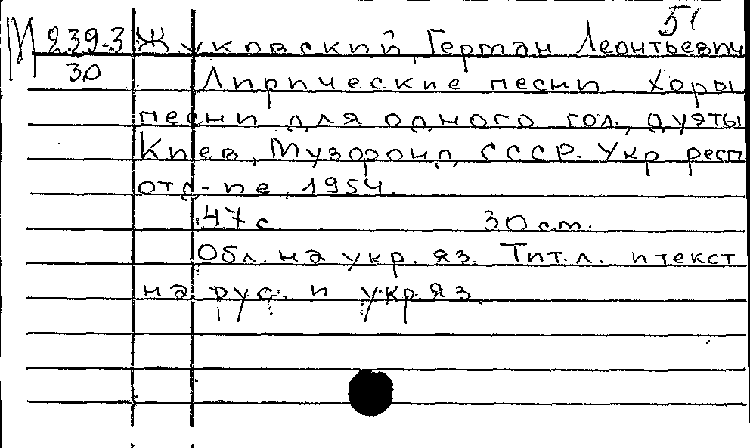 51
М 239-3 Жуковский, Герман Леонтьевич
30 Лирические песни. Хоры,
песни для одного гол., дуэты
Киев, Музфонд СССР. Укр. респ.
отд-ние, 1954.
47 с. 30 см.
Обл. на укр. яз. Тит. л. и текст
на рус. и укр. яз.